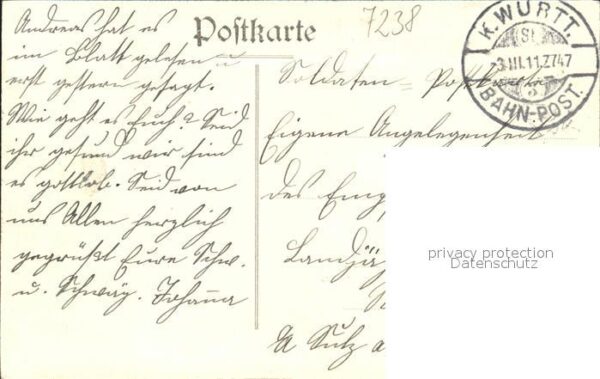 Postkarte
7238
K. WÜRTT.
St.
3 III.11.Z747
3
BAHN-POST.
Andreas hat es
im Blatt gelesen u.
erst gestern gesagt.
Wie geht es Euch? Seid
ihr gesund wir sind
es gottlob. Seid von
uns Allen herzlich
gegrüßt Eure Schw.
u. Schwäg. Johanna
Soldaten-
Eigene Angelegenheit
des Emp
Landjä
A Sulz a
privacy protection
Datenschutz